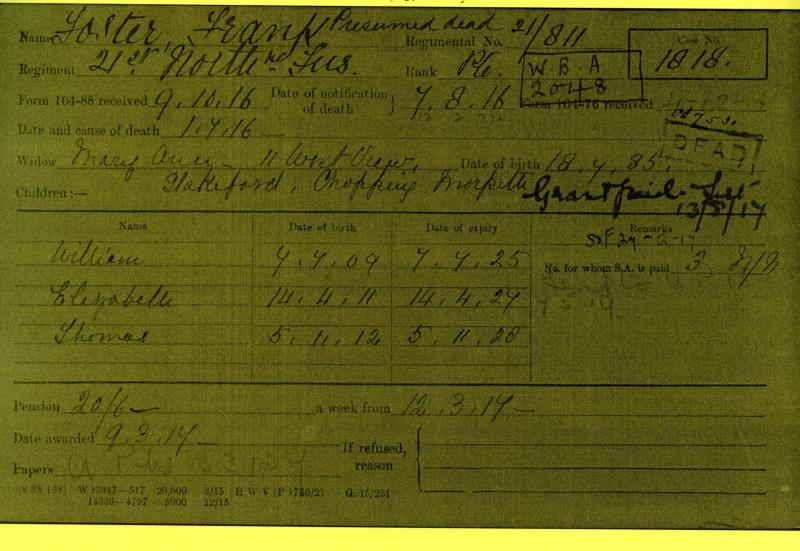 Name Foster, Frank Presumed dead Regimental No. 21/811 Case No. 1818.
Regiment 21st North'nd Fus. Rank Pte. W.B.A 2048
Form 104-88 received 9.10.16 Date of notification of death } 7.8.16 Form 104-76 received
Date and cause of death 1.7.16 —
DEAD
Widow Mary Ann — 11 West View, Date of birth 18.4.85.
Stakeford, Choppington Morpeth
Children :—
13/8/17
Name Date of birth Date of expiry Remarks
William 7.7.09 7.7.25 No. for whom S.A. is paid 3
Elizabeth 14.4.11 14.4.27
Thomas 5.11.12 5.11.28
Pension 20/6— a week from 12.3.17—
Date awarded 9.3.17—
If refused, reason
Papers
(9 38 108) W 13947—517 20,000 3/15 H W V (P 1760/2) G. 15/251
14336—4797 5000 12/15